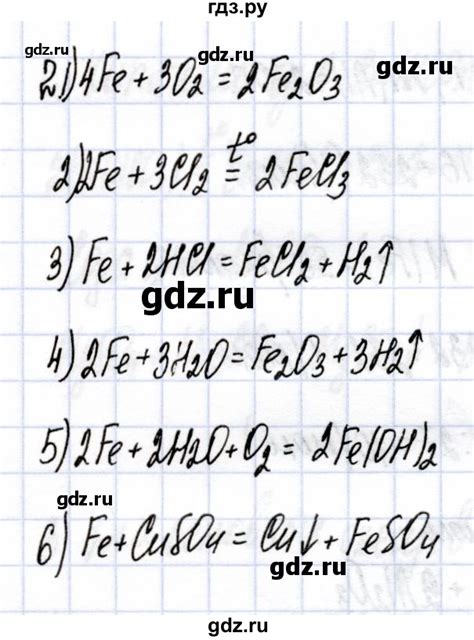 гдз.ру
gdz.ru gdz.ru
2 1) 4Fe + 3O₂ = 2Fe₂O₃
2) 2Fe + 3Cl₂ =^{t°} 2FeCl₃
3) Fe + 2HCl = FeCl₂ + H₂↑
gdz.ru
4) 2Fe + 3H₂O = Fe₂O₃ + 3H₂↑
5) 2Fe + 2H₂O + O₂ = 2Fe(OH)₂
gdz.ru
6) Fe + CuSO₄ = Cu↓ + FeSO₄
gdz.ru
gdz.ru